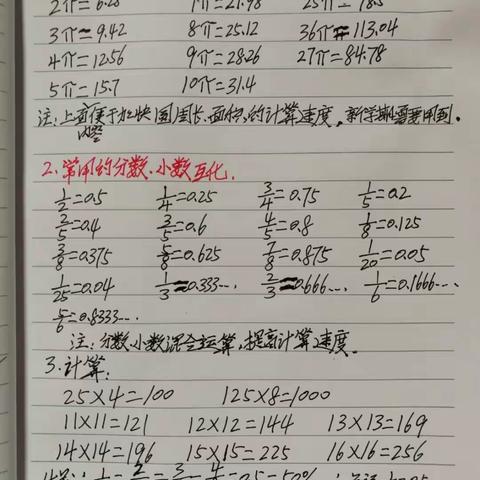 2π=6.28 1π=21.98 25π=78.5
3π≈9.42 8π=25.12 36π≈113.04
4π=12.56 9π=28.26 27π=84.78
5π=15.7 10π=31.4
注:上面内容便于加快圆周长、面积的计算速度,新学期需要用到。
2.常用的分数、小数互化.
1/2=0.5 1/4=0.25 3/4=0.75 1/5=0.2
2/5=0.4 3/5=0.6 4/5=0.8 1/8=0.125
3/8=0.375 5/8=0.625 7/8=0.875 1/20=0.05
1/25=0.04 1/3≈0.333… 2/3≈0.666… 1/6=0.1666…
5/6=0.8333…
注:分数、小数混合运算,提高计算速度。
3.计算:
25×4=100 125×8=1000
11×11=121 12×12=144 13×13=169
14×14=196 15×15=225 16×16=256